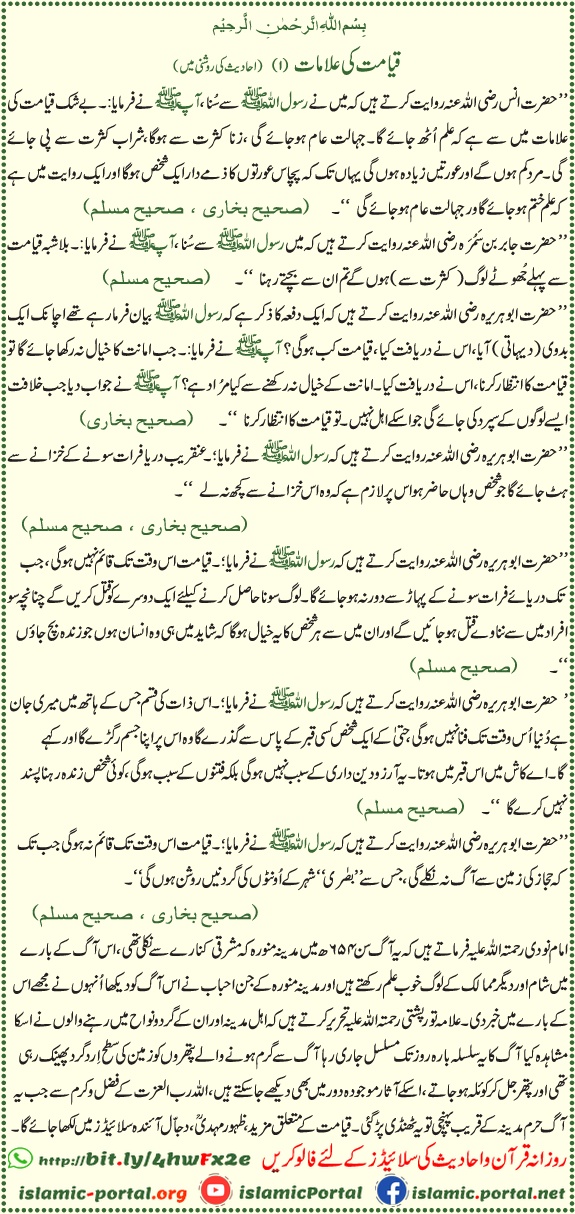 بِسْمِ اللّٰهِ الرَّحْمٰنِ الرَّحِيْمِ
قیامت کی علامات (۱) (احادیث کی روشنی میں)
’’حضرت انس رضی اللہ عنہ روایت کرتے ہیں کہ میں نے رسول اللہ ﷺ سے سُنا، آپ ﷺ نے فرمایا:۔ بے شک قیامت کی
علامات میں سے ہے کہ علم اُٹھ جائے گا۔ جہالت عام ہو جائے گی، زنا کثرت سے ہوگا، شراب کثرت سے پی جائے
گی۔ مرد کم ہوں گے اور عورتیں زیادہ ہوں گی یہاں تک کہ پچاس عورتوں کا ذمے دار ایک شخص ہوگا اور ایک روایت میں ہے
کہ علم ختم ہو جائے گا اور جہالت عام ہو جائے گی ‘‘۔ (صحیح بخاری ، صحیح مسلم)
’’حضرت جابر بن سَمُرَہ رضی اللہ عنہ روایت کرتے ہیں کہ میں رسول اللہ ﷺ سے سُنا، آپ ﷺ نے فرمایا:۔ بلاشبہ قیامت
سے پہلے جُھوٹے لوگ (کثرت سے) ہوں گے تم ان سے بچتے رہنا ‘‘۔ (صحیح مسلم)
’’حضرت ابو ہریرہ رضی اللہ عنہ روایت کرتے ہیں کہ ایک دفعہ کا ذکر ہے کہ رسول اللہ ﷺ بیان فرما رہے تھے اچانک ایک
بدوی (دیہاتی) آیا، اس نے دریافت کیا، قیامت کب ہوگی؟ آپ ﷺ نے فرمایا:۔ جب امانت کا خیال نہ رکھا جائے گا تو
قیامت کا انتظار کرنا، اس نے دریافت کیا۔ امانت کے خیال نہ رکھنے سے کیا مُراد ہے؟ آپ ﷺ نے جواب دیا جب خلافت
ایسے لوگوں کے سپرد کی جائے گی جو اسکے اہل نہیں۔ تو قیامت کا انتظار کرنا ‘‘۔ (صحیح بخاری)
’’حضرت ابو ہریرہ رضی اللہ عنہ روایت کرتے ہیں کہ رسول اللہ ﷺ نے فرمایا؛۔ عنقریب دریا فرات سونے کے خزانے سے
ہٹ جائے گا جو شخص وہاں حاضر ہو اس پر لازم ہے کہ وہ اس خزانے سے کچھ نہ لے ‘‘۔
(صحیح بخاری ، صحیح مسلم)
’’حضرت ابو ہریرہ رضی اللہ عنہ روایت کرتے ہیں کہ رسول اللہ ﷺ نے فرمایا؛۔ قیامت اس وقت تک قائم نہیں ہوگی، جب
تک دریائے فرات سونے کے پہاڑ سے دور نہ ہو جائے گا۔ لوگ سونا حاصل کرنے کیلئے ایک دوسرے کو قتل کریں گے چنانچہ سو
افراد میں سے ننانوے قتل ہو جائیں گے اور ان میں سے ہر شخص کا یہ خیال ہوگا کہ شاید میں ہی وہ انسان ہوں جو زندہ بچ جاؤں
‘‘۔ (صحیح مسلم)
’ حضرت ابو ہریرہ رضی اللہ عنہ روایت کرتے ہیں کہ رسول اللہ ﷺ نے فرمایا؛۔ اس ذات کی قسم جس کے ہاتھ میں میری جان
ہے دُنیا اُس وقت تک فنا نہیں ہوگی حتیٰ کے ایک شخص کسی قبر کے پاس سے گذرے گا وہ اس پر اپنا جسم رگڑے گا اور کہے
گا۔ اے کاش میں اس قبر میں ہوتا۔ یہ آرزو دین داری کے سبب نہیں ہوگی بلکہ فتنوں کے سبب ہوگی، کوئی شخص زندہ رہنا پسند
نہیں کرے گا ‘‘۔ (صحیح مسلم)
’’حضرت ابو ہریرہ رضی اللہ عنہ روایت کرتے ہیں کہ رسول اللہ ﷺ نے فرمایا؛۔ قیامت اس وقت تک قائم نہ ہوگی جب تک
کہ حجاز کی زمین سے آگ نہ نکلے گی، جس سے ’’بصٰری‘‘ شہر کے اُونٹوں کی گردنیں روشن ہوں گی‘‘۔
(صحیح بخاری ، صحیح مسلم)
امام نووی رحمتہ اللہ علیہ فرماتے ہیں کہ یہ آگ سن ۶۵۴ھ میں مدینہ منورہ کہ مشرقی کنارے سے نکلی تھی، اس آگ کے بارے
میں شام اور دیگر ممالک کے لوگ خوب علم رکھتے ہیں اور مدینہ منورہ کے جن احباب نے اس آگ کو دیکھا اُنہوں نے مجھے اس
کے بارے میں خبر دی۔ علامہ تورپشتی رحمتہ اللہ علیہ تحریر کرتے ہیں کہ اہل مدینہ اور ان کے گردو نواح میں رہنے والوں نے اسکا
مشاہدہ کیا آگ کا یہ سلسلہ بارہ روز تک مسلسل جاری رہا آگ سے گرم ہونے والے پتھروں کو زمین کی سطح اِردگرد پھینک رہی
تھی اور پتھر جل کر کوئلہ ہو جاتے، اسکے آثار موجودہ دور میں بھی دیکھے جاسکتے ہیں، اللہ رب العزت کے فضل و کرم سے جب یہ
آگ حرم مدینہ کے قریب پہنچی تو یہ ٹھنڈی پڑ گئی۔ قیامت کے متعلق مزید، ظہور مہدیؒ، دجاّل آئندہ سلائیڈز میں لکھا جائے گا۔
روزانہ قرآن و احادیث کی سلائیڈز کے لئے فالو کریں http://bit.ly/4hwFx2e
islamic-portal.org islamicPortal islamic.portal.net